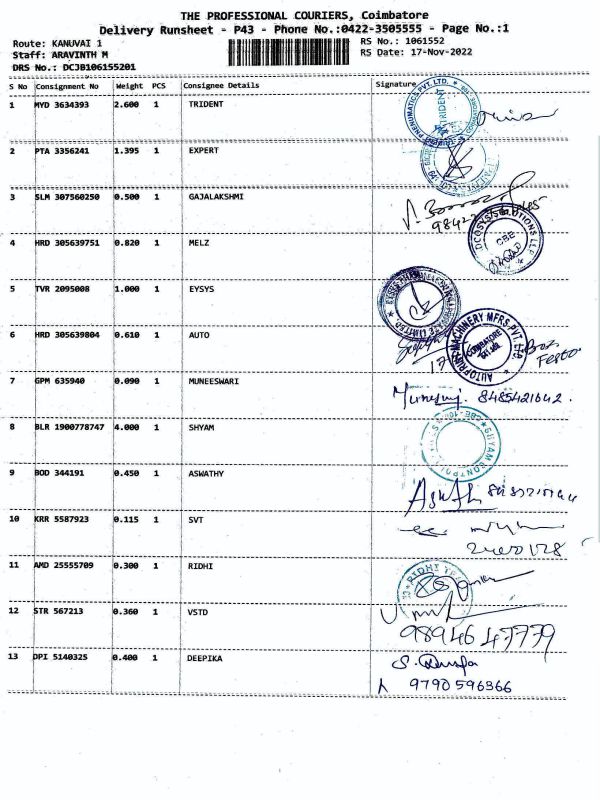 THE PROFESSIONAL COURIERS, Coimbatore
Delivery Runsheet - P43 - Phone No.:0422-3505555 - Page No.:1
Route: KANUVAI 1
RS No.: 1061552
Staff: ARAVINTH M
RS Date: 17-Nov-2022
DRS No.: DCJB106155201
S No Consignment No Weight PCS Consignee Details Signature
1 MYD 3634393 2.600 1 TRIDENT
PNEUMATICS PVT. LTD.
TRIDENT
2 PTA 3356241 1.395 1 EXPERT
3 SLM 307560250 0.500 1 GAJALAKSHMI
4 HRD 305639751 0.820 1 MELZ
SOLUTIONS LLP
CBE
5 TVR 2095008 1.000 1 EYSYS
6 HRD 305639804 0.610 1 AUTO
AUTOPRINT MACHINERY MFRS.PVT.LTD
COIMBATORE
Festo
7 GPM 635940 0.090 1 MUNEESWARI
8485421642.
8 BLR 1900778747 4.000 1 SHYAM
SHYAM CONTROL
9 BOD 344191 0.450 1 ASWATHY
10 KRR 5587923 0.115 1 SVT
11 AMD 25555709 0.300 1 RIDHI
RIDHI
12 STR 567213 0.360 1 VSTD
9894647779
13 DPI 5140325 0.400 1 DEEPIKA
9790596366